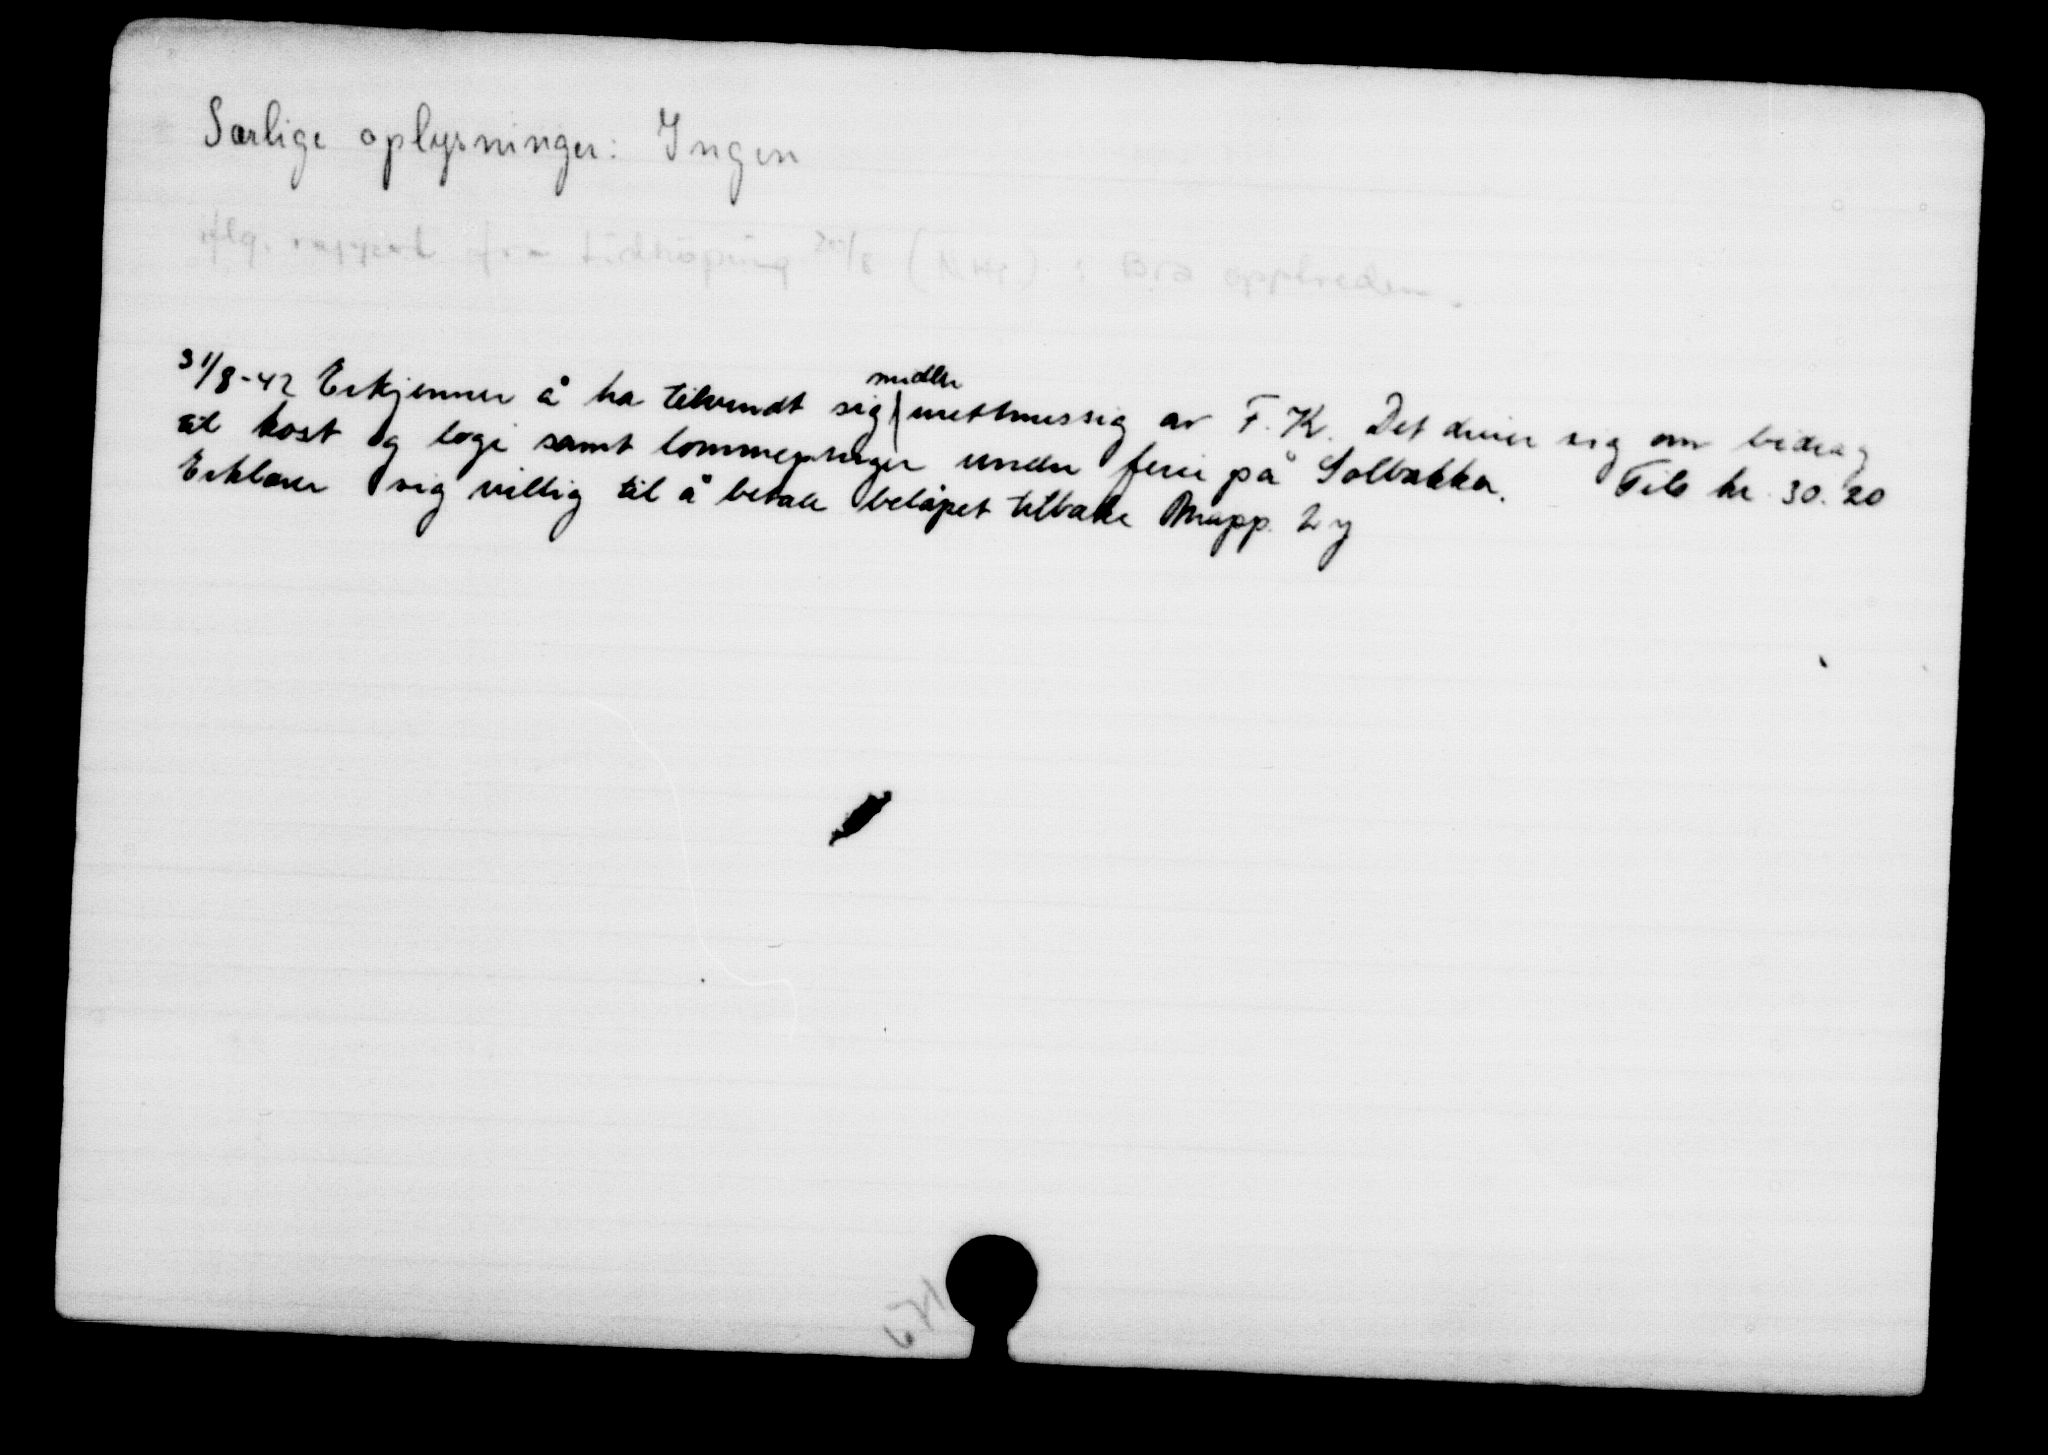 Særlige oplysninger: Ingen
iflg. rapport fra Lidköping 25/8 ( ) : Bra opptreden.
midler
31/8-42 Erkjenner å ha tilvendt sig urettmessig av F. K. Det dreier sig om bidrag
til kost og logi samt lommepenger under ferie på Solbakka. Tils kr. 30.20
Erklærer sig villig til å betale beløpet tilbake Mapp.